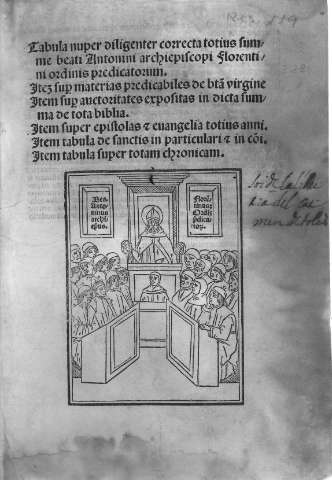 Tabula nuper diligenter correcta totius sum-
me beati Antonini archiepiscopi Florenti-
ni ordinis predicatorum.
Itē sup materias predicabiles de btā virgine
Item sup auctoritates expositas in dicta sum-
ma de tota biblia.
Item super epistolas ⁊ euangelia totius anni.
Item tabula de sanctis in particulari ⁊ in cōi.
Item tabula super totam chronicam.
Beat⁹
Anto-
ninus
archi
epūs.
Flore-
tinus
Ordis
p̄dica-
toꝝ.